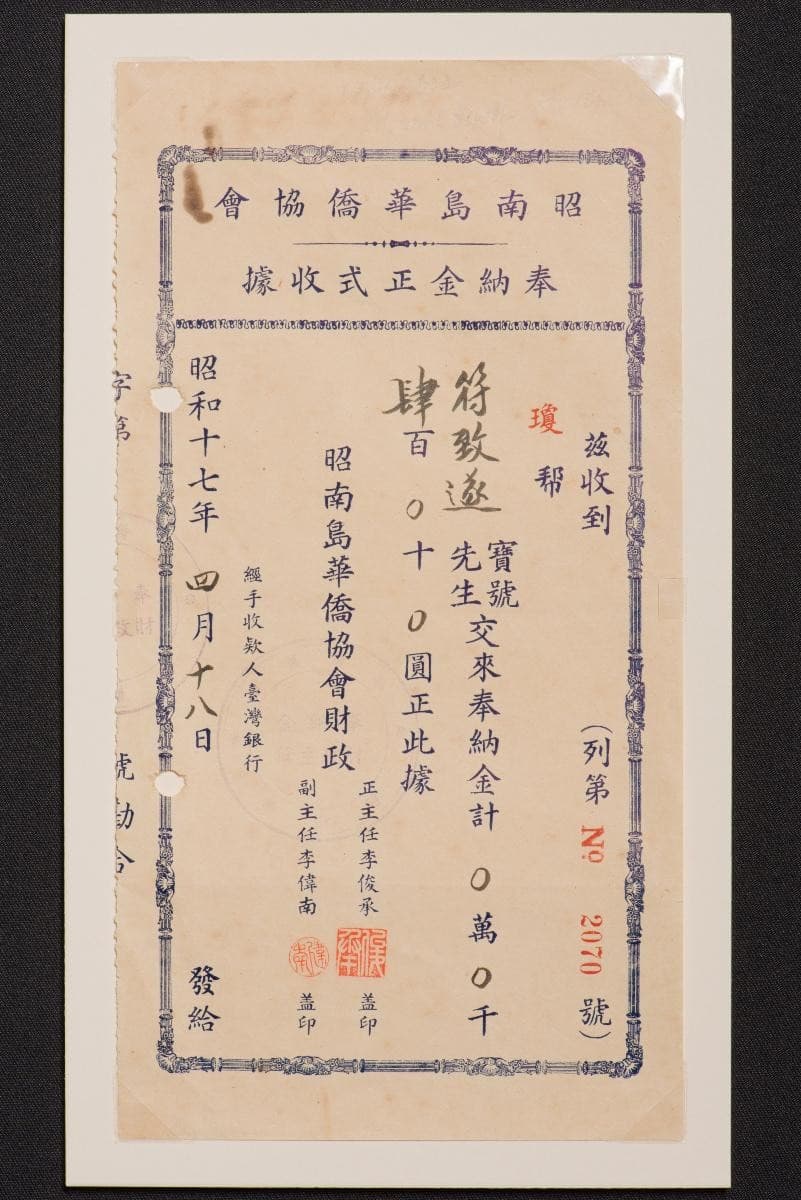 昭南島華僑協會
奉納金正式收據
茲收到
(列第 Nº 2070 號)
瓊幇
符致遂 寶號
先生 交來奉納金計 0 萬 0 千
肆百 0 十 0 圓正此據
昭南島華僑協會財政
正主任李俊承 蓋印
副主任李偉南 蓋印
經手收欵人臺灣銀行
昭和十七年 四月十八日 發給
字第 號勘合